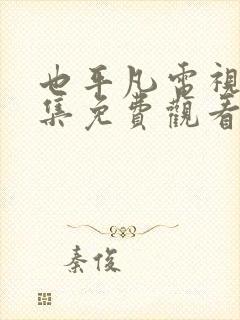 也平凡電視
集免費觀看
秦俊